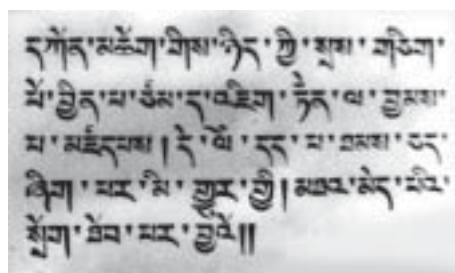 དཀོན་མཆོག་གིས་ཉིད་ཀྱི་སྲས་གཅིག་
པོ་བྱིན་པ་ཙམ་དུ་འཇིག་རྟེན་ལ་བྱམས་
པ་མཛད་པས། དེ་ལ་དད་པ་ཐམས་ཅད་
ཞིག་པར་མི་གྱུར་གྱི། མཐའ་མེད་པའི་
སྲོག་ཐོབ་པར་བྱའོ།།